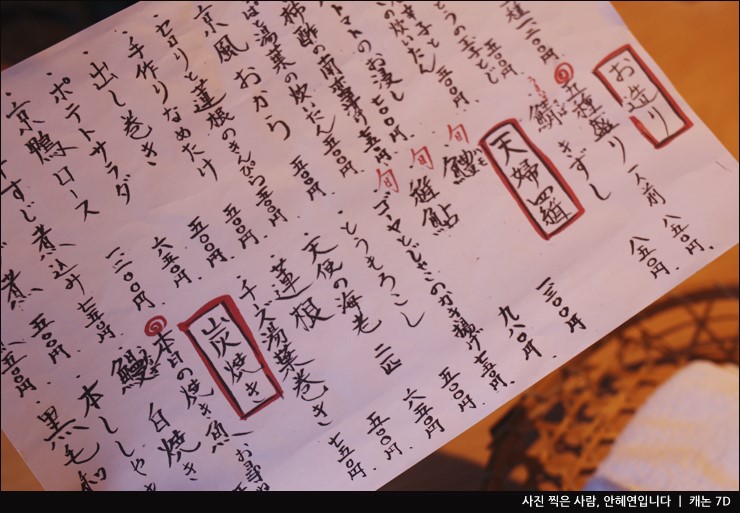 お造り
五種盛り 一人前 八五〇円
鯖きずし 八五〇円
天婦羅
旬 鱧 一三〇〇円
旬 稚鮎 九八〇円
旬 ゴーヤとじゃこのかき揚げ 七五〇円
とうもろこし 五〇〇円
天使の海老 二匹 六五〇円
蓮根 五〇〇円
チーズ湯葉巻き 七五〇円
炭焼き
本日の焼き魚 お尋ね
鰻 白焼き
本ししゃも
黒毛和
一二〇円
とうの玉子とじ 五〇〇円
の炊いたん 五〇〇円
トマトのお浸し 七〇〇円
南蛮漬け 七五〇円
湯葉の炊いたん 五〇〇円
京風おから 五〇〇円
セロリと蓮根のきんぴら 五五〇円
手作りなめたけ 五〇〇円
出し巻き 六五〇円
ポテトサラダ 五〇〇円
京鴨ロース 一二〇〇円
すじ煮込み 七五〇円
煮 五〇円
사진 찍은 사람, 안혜연입니다 | 캐논 7D